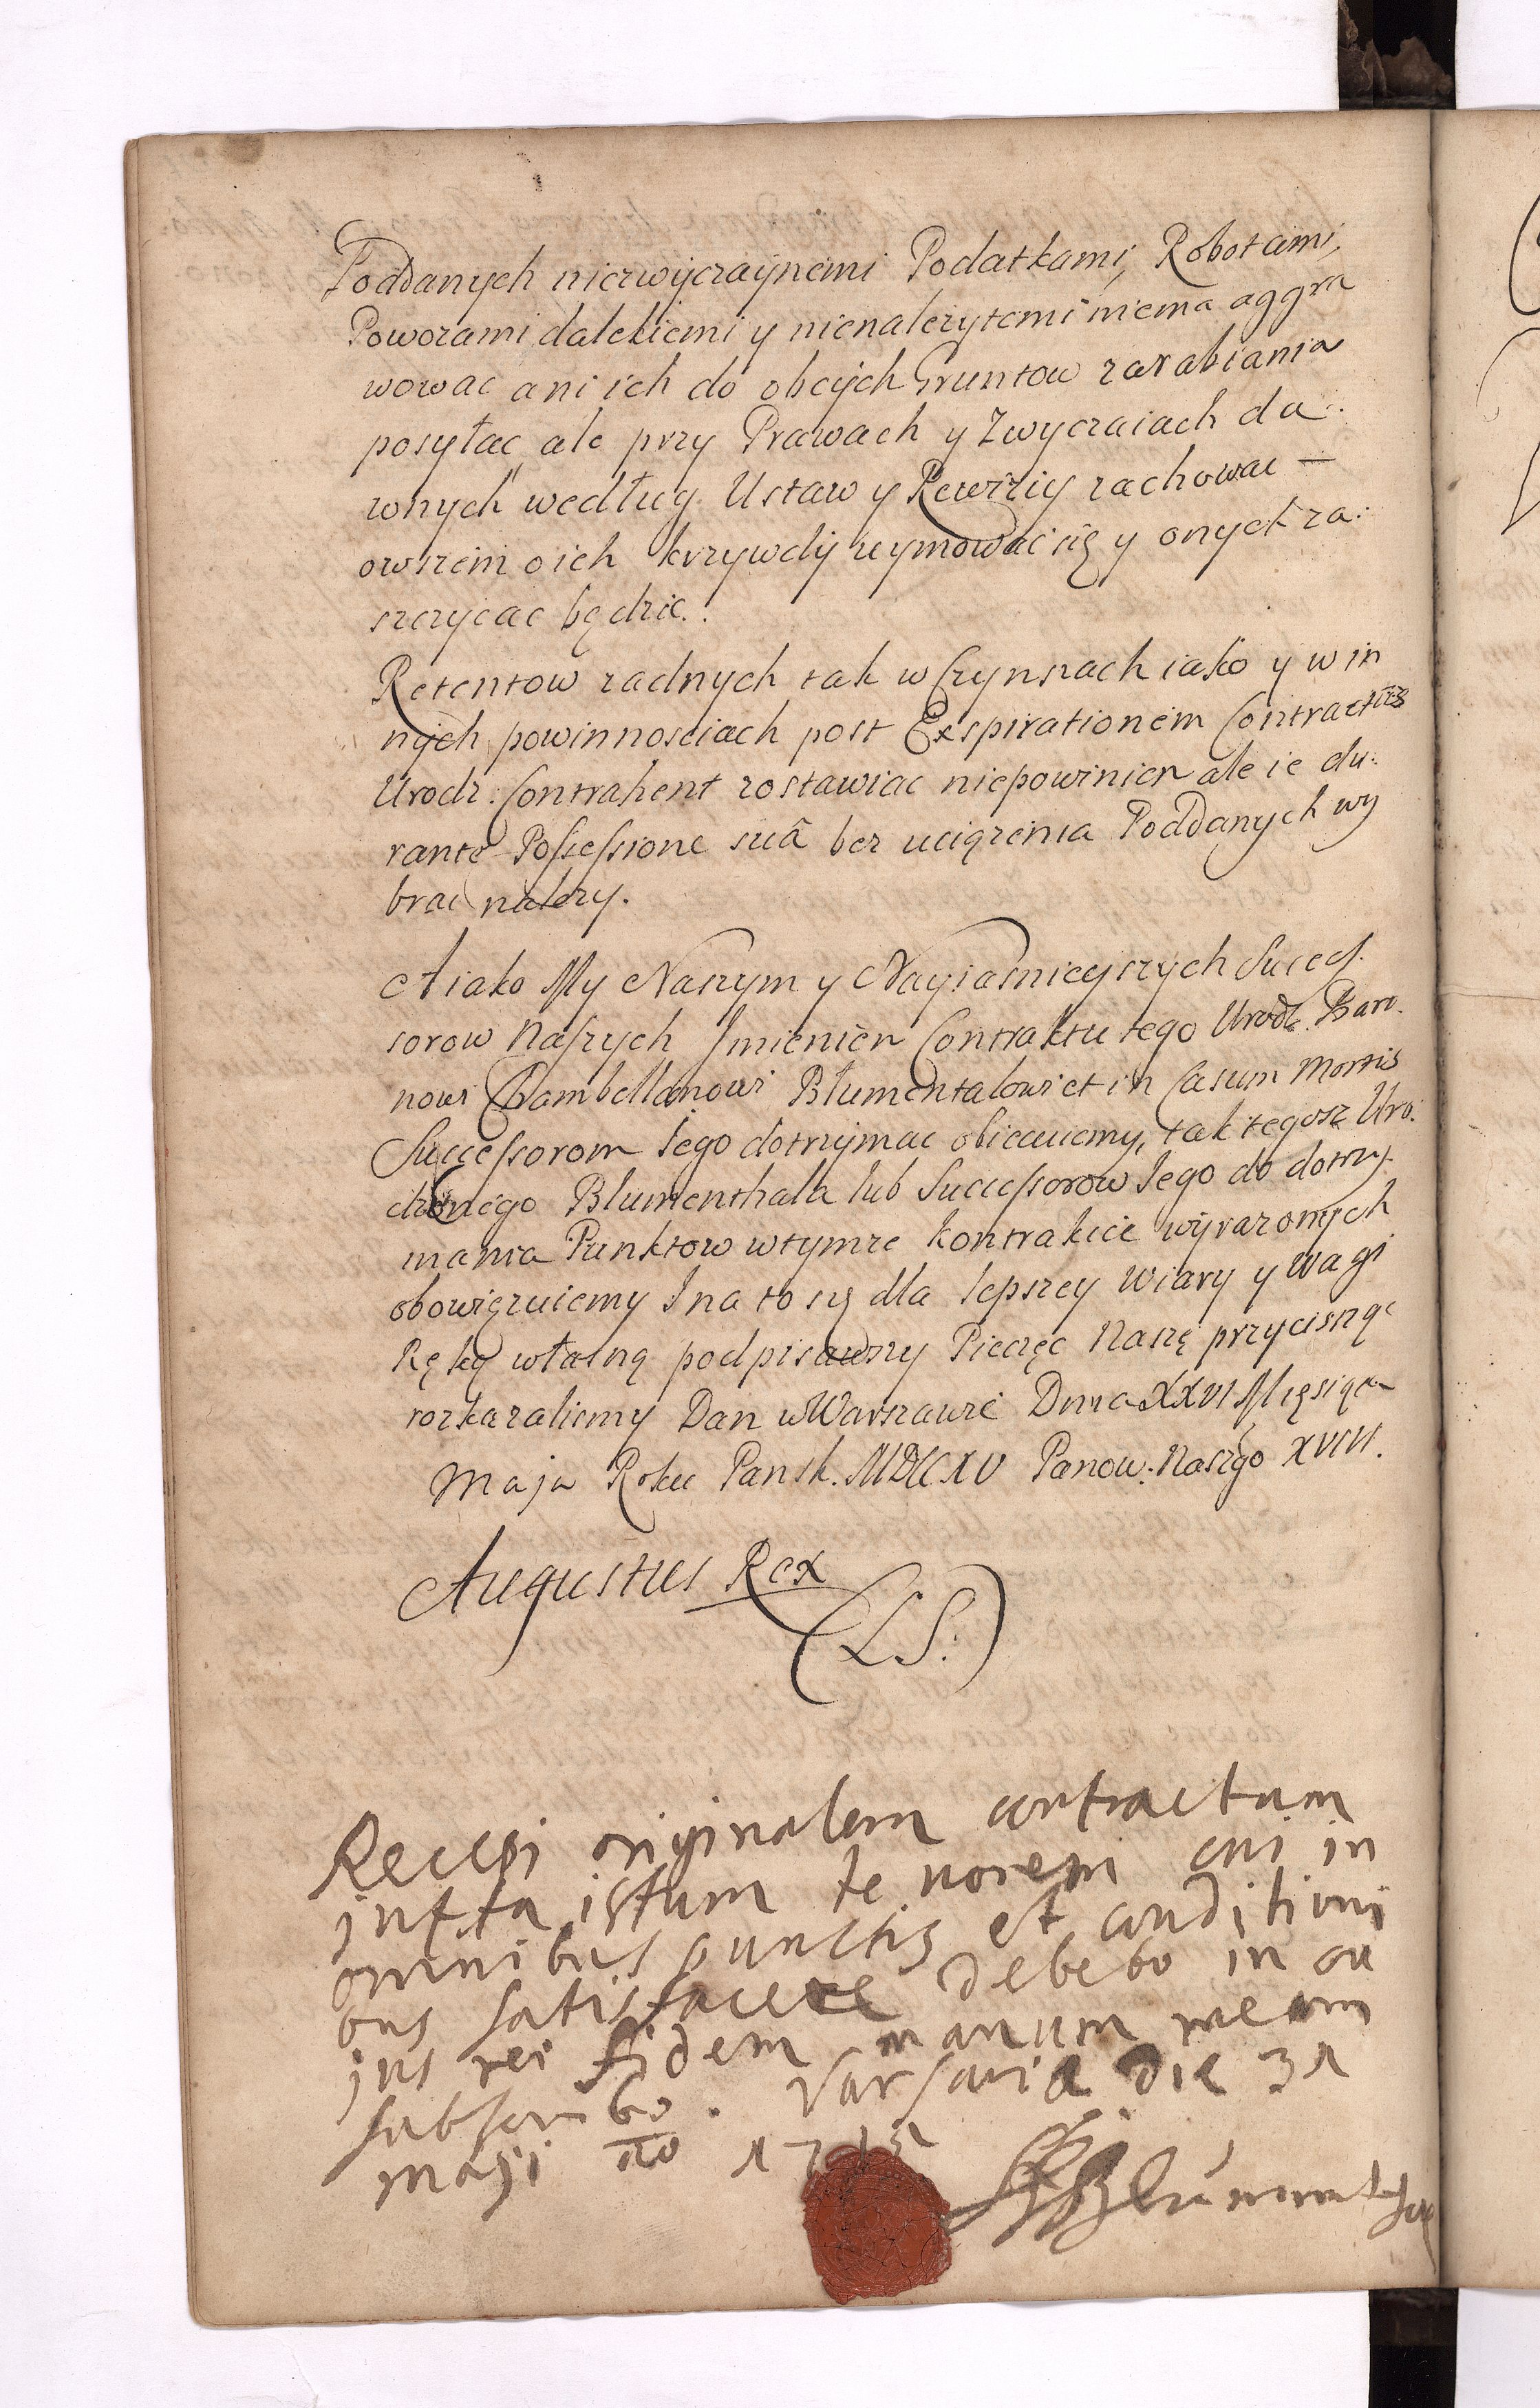 Poddanych niezwyczaynemi Podatkami, Robotami,
Powozami dalekiemi y nienalezytemi niema aggra
wowac ani ich do obcych Gruntow zarabiania
posyłac, ale przy Prawach y Zwyczaiach da:
wnych według Ustaw y Rewizÿ zachowac –
owszem o ich krzywdÿ uymowac się y onych za:
szczycac będzie.
Retentow zadnych tak w Czynszach iako y w in
nych powinnosciach post Exspirationem Contractus
Urodz. Contrahent zostawiac niepowinien ale ie du:
rante Possessione suâ bez uciązenia Poddanych wy
brac nalezy.
A iako My Naszym y Nayiasnieyszych Succes.
sorow Naszych Imieniem Contraktu tego Urodz. Baro.
nowi Chambellanowi Blumentalowi et in Casum Mortis
Successorom Iego dotrzymac obiecuiemy, tak tegosz Uro.
dzonego Blumenthala lub Successorow Iego do dotrzy.
mania Punktow w tymze kontrakcie wyrazonych
obowiązuiemy I na to się dla lepszey Wiary y Wagi
Ręką własną podpisawszy Pieczęc Naszę przycisnąc
rozkazalismy Dan w Warszawie Dnia XXVI Mięsiąca
Maja Roku Pansk. MDCCXV Panow. Naszgo XVIII.
Augustus Rex
(L.S.)
Recepi originalem contractum
juxta istum tenorem cui in
omnibus punctis et conditioni
bus satisfacere debebo in cu
jus rei fidem manum meam
subscribo. Varsavia die 31
maji ao 1715
Blumenthal